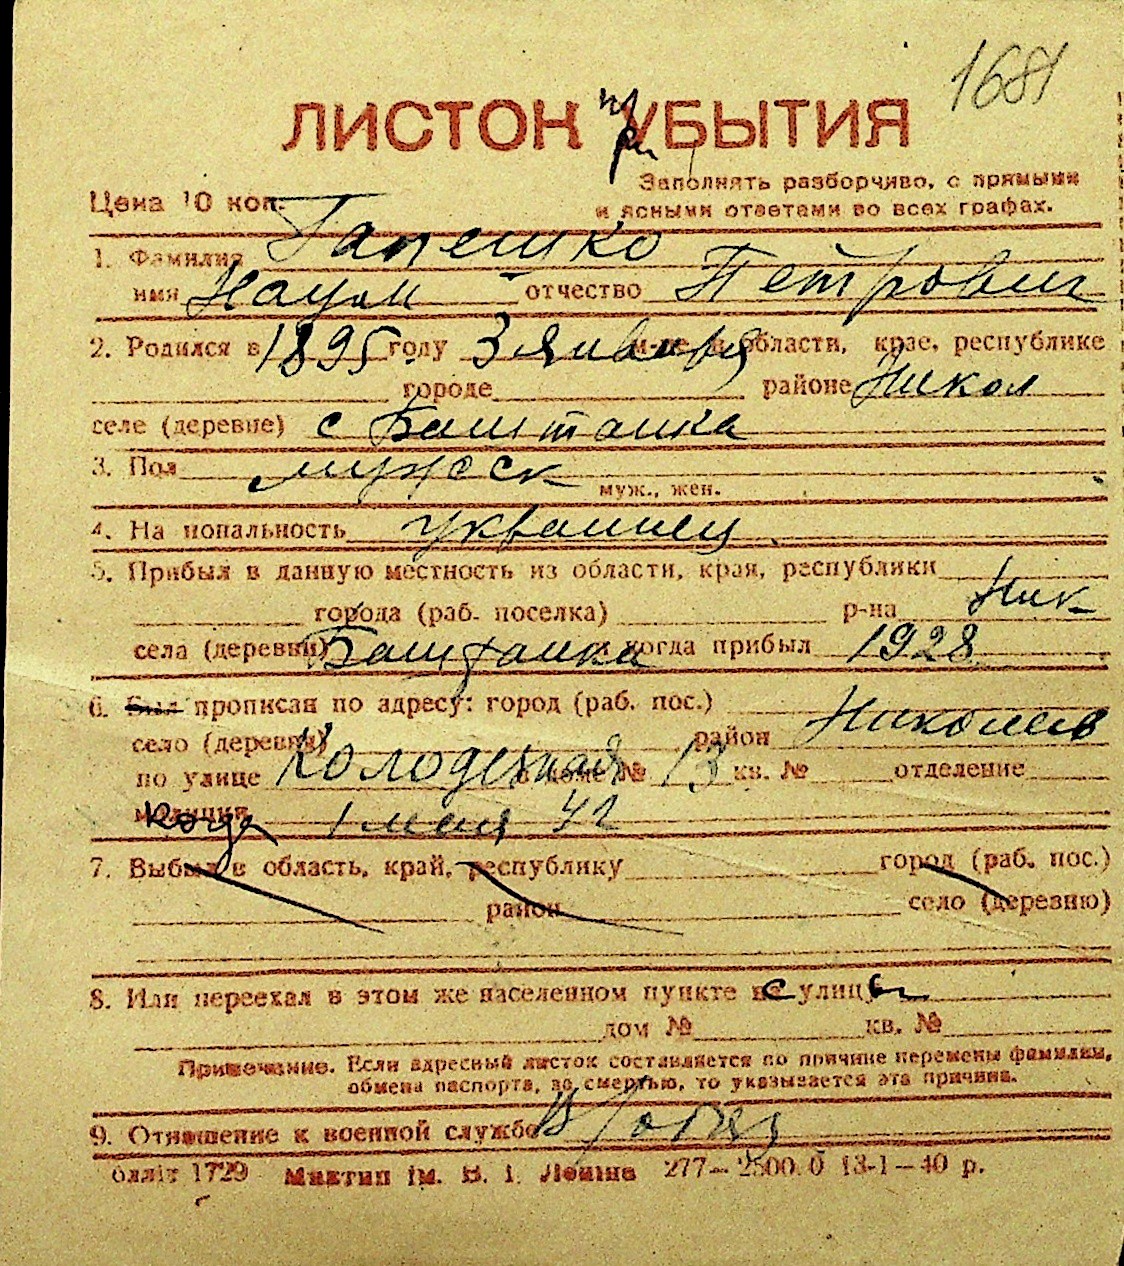 1681
ЛИСТОК при УБЫТИЯ
Заполнять разборчиво, с прямыми
Цена 10 коп. и ясными ответами во всех графах.
1. Фамилия Гапешко
имя Наум отчество Петрович
2. Родился в 1895 году 3 января м-це в области, крае, республике
городе районе Никол
селе (деревне) с Баштанка
3. Пол мужск
муж., жен.
4. На нопальность украинец
5. Прибыл в данную местность из области, края, республики
города (раб. поселка) р-на Ник
села (деревни) Баштанка когда прибыл 1928
6. Был прописан по адресу: город (раб. пос.)
село (деревня) район Николаев
по улице Колодезная в доме № 13 кв. № отделение
милиции когда 1 мая 42
7. Выбыл в область, край, республику город (раб. пос.)
район село (деревню)
8. Или переехал в этом же населенном пункте с улицы
дом № кв. №
Примечание. Если адресный листок составляется по причине перемены фамилии,
обмена паспорта, за смертью, то указывается эта причина.
9. Отношение к военной службе
блліт 1729 Миктип ім. В. І. Леніна 277—2500.0 13-1—40 р.